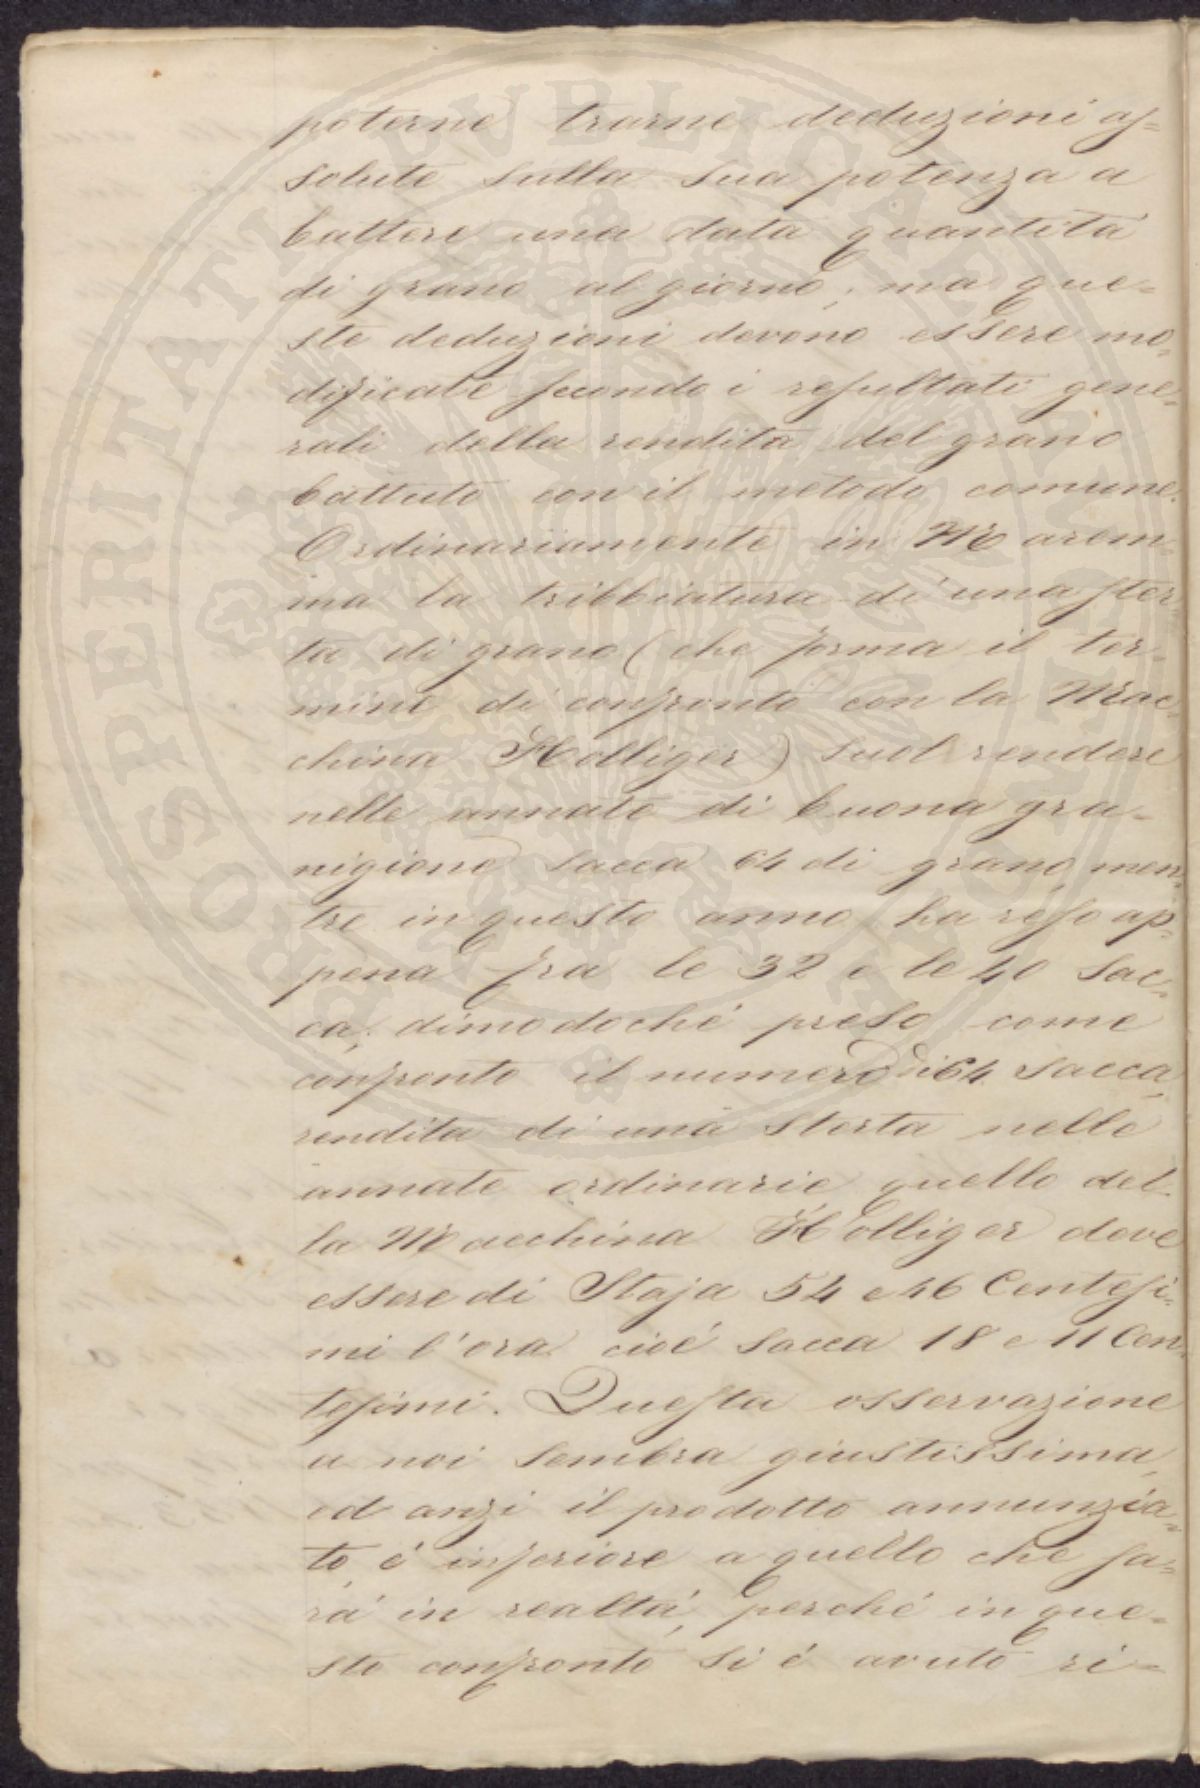 poterne trarne deduzioni as=
solute sulla sua potenza a
battere una data quantità
di grano al giorno, ma que=
ste deduzioni devono essere mo=
dificate secondo i resultati gene=
rali della rendita del grano
battuto con il metodo comune.
Ordinariamente in Marem=
ma la tribbiatura di una ster=
ta di grano (che forma il ter=
mine di confronto con la Mac=
china Holliger) suol rendere
nelle annate di buona gra=
nigione sacca 64 di grano, men=
tre in questo anno ha reso ap=
pena fra le 32 e le 40 sac=
ca; dimodoché preso come
confronto il numero di 64 sacca,
rendita di una sterta nelle
annate ordinarie, quello del=
la Macchina Holliger deve
essere di Staja 54 e 46 Centesi=
mi l'ora cioé sacca 18 e 11 Cen=
tesimi. Questa osservazione
a noi sembra giustissima,
ed anzi il prodotto annunzia=
to é inferiore a quello che sa=
rá in realtá, perché in que=
sto confronto si é avuto ri=
PROSPERITATI PVBLICAE AVGENDAE